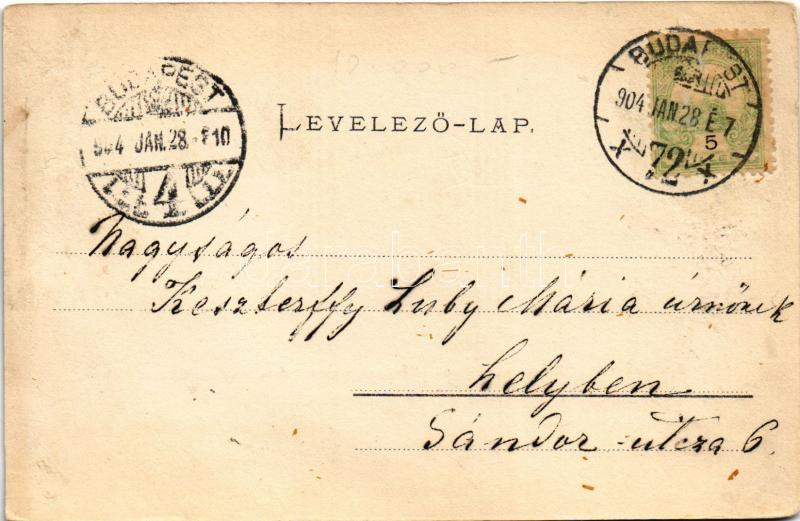 BUDAPEST
904 JAN. 28
4
BUDAPEST
904 JAN. 28 É 7
72
5
LEVELEZŐ-LAP.
darabanth
Nagyságos
Keszterffy Luby Mária úrnőnek
helyben
Sándor-utcza 6.